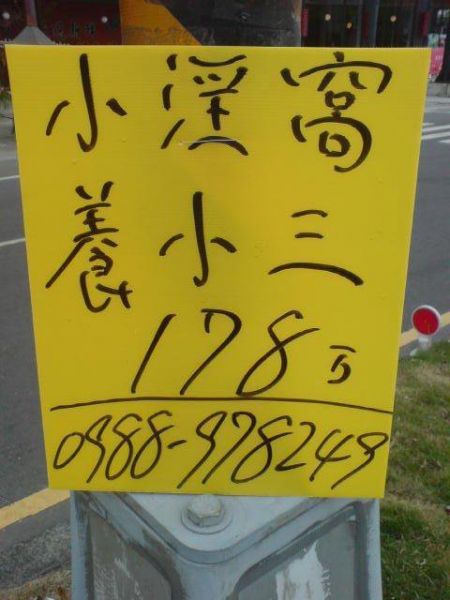 小淫窩
養小三
178万
0988-978249